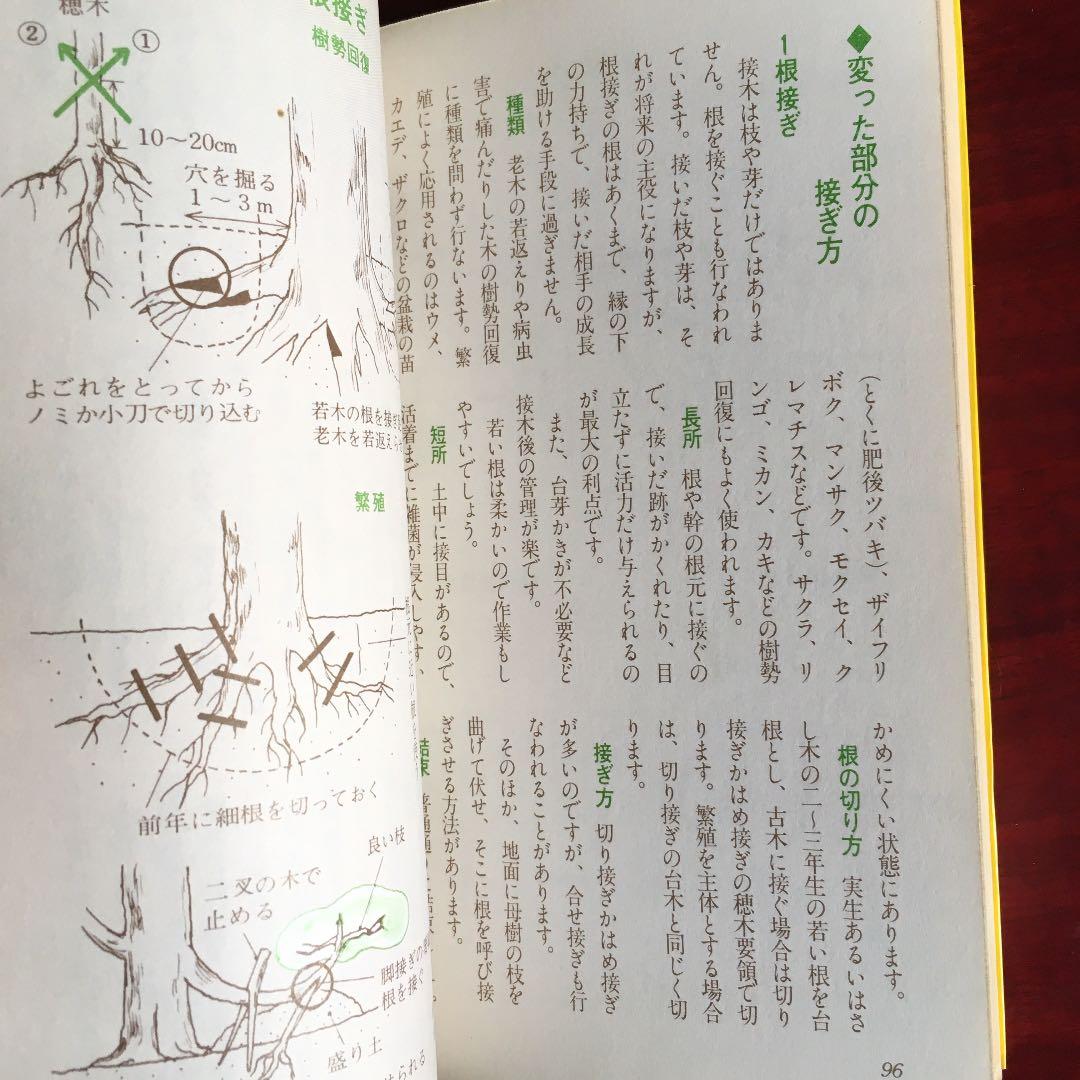 ◆変った部分の
接ぎ方
1根接ぎ
接木は枝や芽だけではありま
せん。根を接ぐことも行なわれ
ています。接いだ枝や芽は、そ
れが将来の主役になりますが、
根接ぎの根はあくまで、縁の下
の力持ちで、接いだ相手の成長
を助ける手段に過ぎません。
種類 老木の若返えりや病虫
害で痛んだりした木の樹勢回復
に種類を問わず行ないます。繁
殖によく応用されるのはウメ、
カエデ、ザクロなどの盆栽の苗
(とくに肥後ツバキ)、ザイフリ
ボク、マンサク、モクセイ、ク
レマチスなどです。サクラ、リ
ンゴ、ミカン、カキなどの樹勢
回復にもよく使われます。
長所 根や幹の根元に接ぐの
で、接いだ跡がかくれたり、目
立たずに活力だけ与えられるの
が最大の利点です。
また、台芽かきが不必要など
接木後の管理が楽です。
若い根は柔かいので作業もし
やすいでしょう。
短所 土中に接目があるので、
活着までに雑菌が侵入しやすい、
かめにくい状態にあります。
根の切り方 実生あるいはさ
し木の二〜三年生の若い根を台
根とし、古木に接ぐ場合は切り
接ぎかはめ接ぎの穂木要領で切
ります。繁殖を主体とする場合
は、切り接ぎの台木と同じく切
ります。
接ぎ方 切り接ぎかはめ接ぎ
が多いのですが、合せ接ぎも行
なわれることがあります。
そのほか、地面に母樹の枝を
曲げて伏せ、そこに根を呼び接
ぎさせる方法があります。
結束
96
根接ぎ
樹勢回復
穂木
②
①
10〜20cm
穴を掘る
1〜3m
よごれをとってから
ノミか小刀で切り込む
若木の根を接ぎ
老木を若返えら
繁殖
前年に細根を切っておく
良い枝
二叉の木で
止める
脚接ぎの
根を接ぐ
盛り土
られる